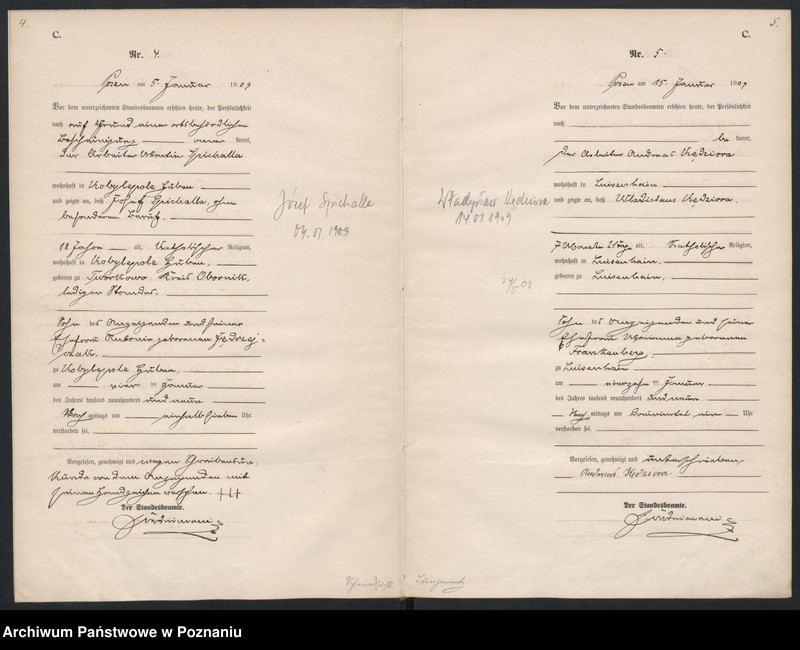 4.
C.
Nr. 4.
Posen am 5. Januar 1909
Vor dem unterzeichneten Standesbeamten erschien heute, der Persönlichkeit
nach auf Grund einer ortsbehördlichen
Bescheinigung kannt,
der Arbeiter Martin Spichalla
wohnhaft in Kobylepole Huben
und zeigte an, daß Josef Spichalla, ohne
besonderen Beruf.
18 Jahre alt, Katholischer Religion,
wohnhaft in Kobylepole Huben,
geboren zu Kreis Obornik,
ledigen Standes.
Sohn des Anzeigenden und seiner
Ehefrau Antonia geborenen
zu Kobylepole Huben,
am vier ten Januar
des Jahres tausend neunhundert und neun
Nach mittags um einhalb sieben Uhr
verstorben sei.
Vorgelesen, genehmigt und wegen Schreibensun-
kunde von dem Anzeigenden mit
seinem Handzeichen versehen. +++
Der Standesbeamte.
Józef Spichalla
04.01.1909
5.
C.
Nr. 5.
Posen am 15. Januar 1909
Vor dem unterzeichneten Standesbeamten erschien heute, der Persönlichkeit
nach
be kannt,
der Arbeiter Andreas Kędziora
wohnhaft in Luisenhain
und zeigte an, daß Wladislaus Kędziora,
7 Monate alt, Katholischer Religion,
wohnhaft in Luisenhain,
geboren zu Luisenhain,
Sohn des Anzeigenden und seiner
Ehefrau Marianna geborenen
Frankenberg,
zu Luisenhain
am vierzehn ten Januar
des Jahres tausend neunhundert und neun
Nach mittags um dreiviertel ein Uhr
verstorben sei.
Vorgelesen, genehmigt und unterschrieben
Andreas Kędziora
Der Standesbeamte.
Władysław Kędziora
14.01.1909
24/5 08
Archiwum Państwowe w Poznaniu